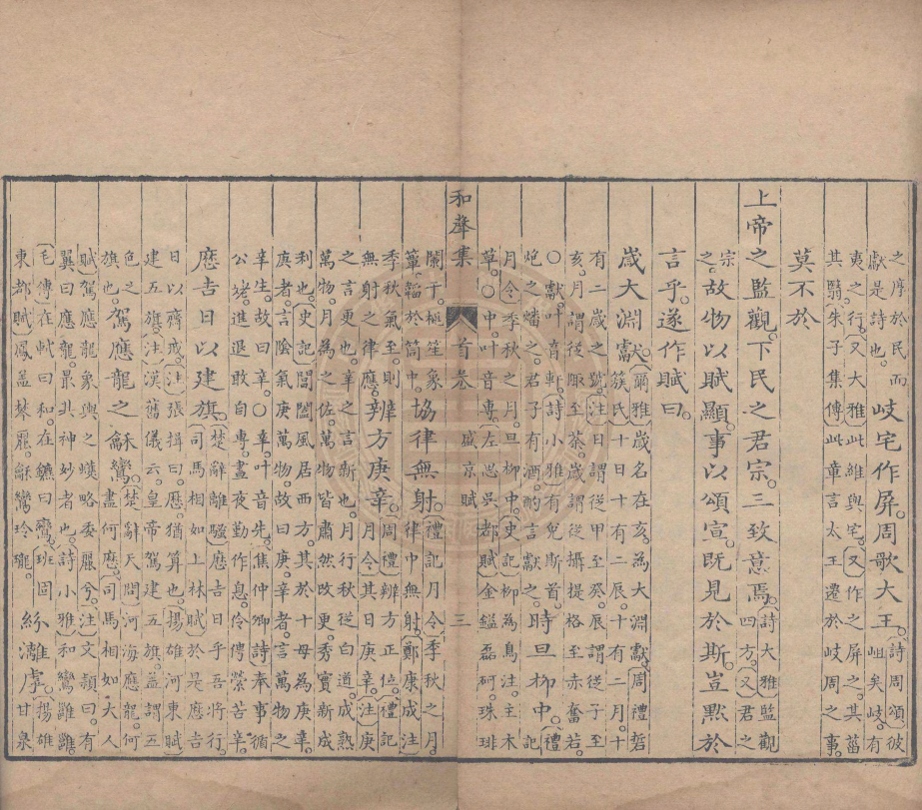 之摩於民而
獻是詩也。
岐宅作屏。周歌大王。
(詩周頌)彼
岨矣岐。有
夷之行。(又)大雅此維與宅。(又)作之屏之。其菑
其翳。朱子集傳此章言太王遷於岐周之事。
莫不於
上帝之監觀。下民之君宗。三致意焉。
(詩大雅)監觀
四方。(又)君之
宗
之。
故物以賦顯。事以頌宣。既見於斯。豈默於
言乎。遂作賦曰。
歲大淵獻。
(爾雅)歲名在亥。為大淵獻(周禮)硩
蔟氏十日十有二辰。十有二月。十
有二歲之號(注)日謂從甲至癸。辰謂從子至
亥。月謂從陬至荼。歲謂從攝提格至赤奮若。
○獻。叶音軒。(詩小雅)有兔斯首。
炮之燔之。君子有酒。酌言獻之。
時旦柳中。
(禮
月令)季秋之月。旦柳中。史記柳為鳥注。主木
草。○中。叶音專。(左思吳都賦)金鎰磊砢。珠琲
和聲集 首卷 盛京賦 三
闌干。極笙象
簟。韜於筒中。
協律無射。
(禮記月令)季秋之月。
律中無射。(鄭康成注)
季秋氣至。則
無射之律應。
辨方庚辛。
(周禮)辨方正位。(禮記
月令)其日庚辛。(注)庚
之言更也。辛之言新也。月行秋從白道。成熟
萬物。月為之佐。萬物皆肅然改更。秀實新成。
利也。(史記)閶闔風居西方。其於十母為庚辛。
庚者。言陰氣庚萬物。故曰庚。辛者。言萬物之
辛生。故曰辛。○辛。叶音先。(焦仲卿詩)奉事循
公姥。進退敢自專。晝夜勤作息。伶俜縈苦辛。
歷吉日以建旗。
(楚辭離騷)歷吉日乎吾將行。
(司馬相如上林賦)於是歷吉
日以齊戒。(注)張揖曰。歷猶算也。(揚雄河東賦)
建五旗。(注)漢舊儀云。皇帝駕建五旗。蓋謂五
色之
旗也。
駕應龍之龢鸞。
(楚辭天問)河海應龍。何
盡何歷。(司馬相如大人
賦)駕應龍象輿之蠖略委麗兮。(注)文穎曰。有
翼曰應龍。最其神妙者也。(詩小雅)和鸞雝雝
(毛傳)在軾曰和。在鑣曰鸞。(班固
東都賦)鳳蓋棽麗。龢鸞玲瓏。
紛灕虖。
(揚雄
甘泉